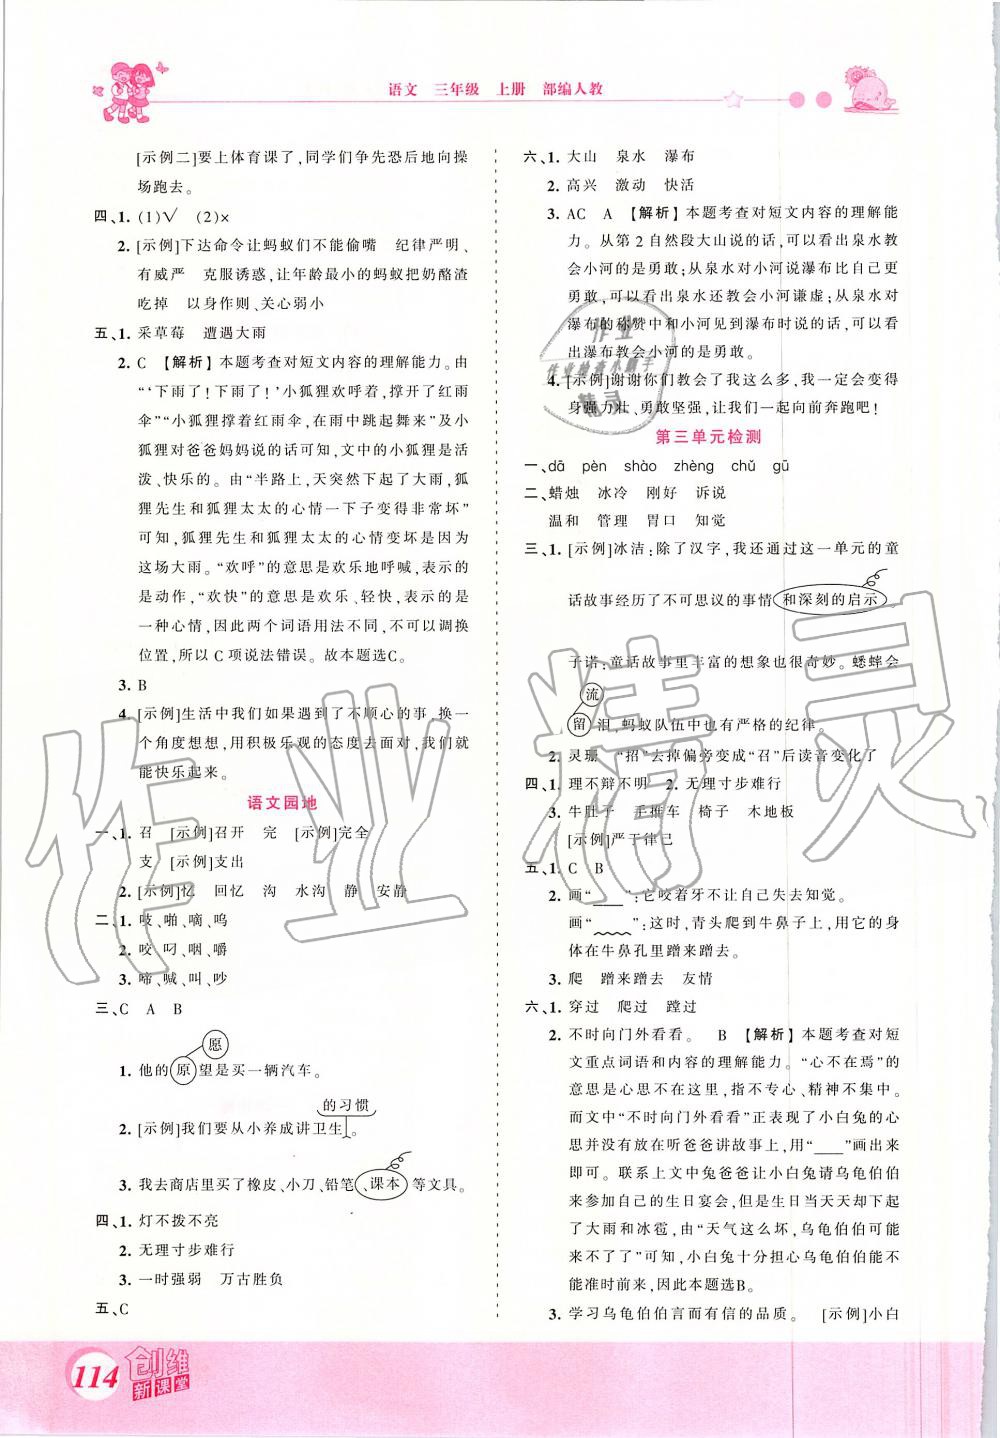 语文 三年级 上册 部编人教
[示例二]要上体育课了,同学们争先恐后地向操
场跑去。
四、1. (1)√ (2)×
2. [示例]下达命令让蚂蚁们不能偷嘴 纪律严明、
有威严 克服诱惑,让年龄最小的蚂蚁把奶酪渣
吃掉 以身作则、关心弱小
五、1. 采草莓 遭遇大雨
2. C 【解析】本题考查对短文内容的理解能力。由
“‘下雨了!下雨了!’小狐狸欢呼着,撑开了红雨
伞”“小狐狸撑着红雨伞,在雨中跳起舞来”以及小
狐狸对爸爸妈妈说的话可知,文中的小狐狸是活
泼、快乐的。由“半路上,天突然下起了大雨,狐
狸先生和狐狸太太的心情一下子变得非常坏”
可知,狐狸先生和狐狸太太的心情变坏是因为
这场大雨。“欢呼”的意思是欢乐地呼喊,表示的
是动作,“欢快”的意思是欢乐、轻快,表示的是
一种心情,因此两个词语用法不同,不可以调换
位置,所以 C 项说法错误。故本题选C。
3. B
4. [示例]生活中我们如果遇到了不顺心的事 换一
个角度想想,用积极乐观的态度去面对,我们就
能快乐起来。
语文园地
一、1. 召 [示例]召开 完 [示例]完全
支 [示例]支出
2. [示例]忆 回忆 沟 水沟 静 安静
二、1. 吱、啪、嘀、呜
2. 咬、叼、咽、嚼
3. 啼、喊、叫、吵
三、C A B
愿
1. 他的原望是买一辆汽车。
的习惯
2. [示例]我们要从小养成讲卫生。
3. 我去商店里买了橡皮、小刀、铅笔、课本等文具。
四、1. 灯不拨不亮
2. 无理寸步难行
3. 一时强弱 万古胜负
五、C
六、1. 大山 泉水 瀑布
2. 高兴 激动 快活
3. AC A 【解析】本题考查对短文内容的理解能
力。从第 2 自然段大山说的话,可以看出泉水教
会小河的是勇敢;从泉水对小河说瀑布比自己更
勇敢,可以看出泉水还教会小河谦虚;从泉水对
瀑布的称赞中和小河见到瀑布时说的话,可以看
出瀑布教会小河的是勇敢。
4. [示例]谢谢你们教会了我这么多,我一定会变得
身强力壮、勇敢坚强,让我们一起向前奔跑吧!
第三单元检测
一、dā pèn shào zhèng chǔ gū
二、蜡烛 冰冷 刚好 诉说
温和 管理 胃口 知觉
三、1. [示例]冰洁:除了汉字,我还通过这一单元的童
话故事经历了不可思议的事情和深刻的启示
子诺:童话故事里丰富的想象也很奇妙。蟋蟀会
流
留泪,蚂蚁队伍中也有严格的纪律。
2. 灵珊 “招”去掉偏旁变成“召”后读音变化了
四、1. 理不辩不明 2. 无理寸步难行
3. 牛肚子 手推车 椅子 木地板
[示例]严于律己
五、1. C B
2. 画“____”:它咬着牙不让自己失去知觉。
画“﹏﹏”:这时,青头爬到牛鼻子上,用它的身
体在牛鼻孔里蹭来蹭去。
3. 爬 蹭来蹭去 友情
六、1. 穿过 爬过 蹚过
2. 不时向门外看看。 B 【解析】本题考查对短
文重点词语和内容的理解能力。“心不在焉”的
意思是心思不在这里,指不专心、精神不集中。
而文中“不时向门外看看”正表现了小白兔的心
思并没有放在听爸爸讲故事上,用“____”画出来
即可。联系上文中兔爸爸让小白兔请乌龟伯伯
来参加自己的生日宴会,但是生日当天却下起
了大雨和冰雹,由“天气这么坏,乌龟伯伯可能
来不了了”可知,小白兔十分担心乌龟伯伯能不
能准时前来,因此本题选B。
3. 学习乌龟伯伯言而有信的品质。 [示例]小白
114
创维
新课堂
作业精灵
作业
作业检查小助手
精灵